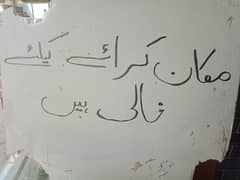 مکان کرائے کیلئے
خالی ہیں